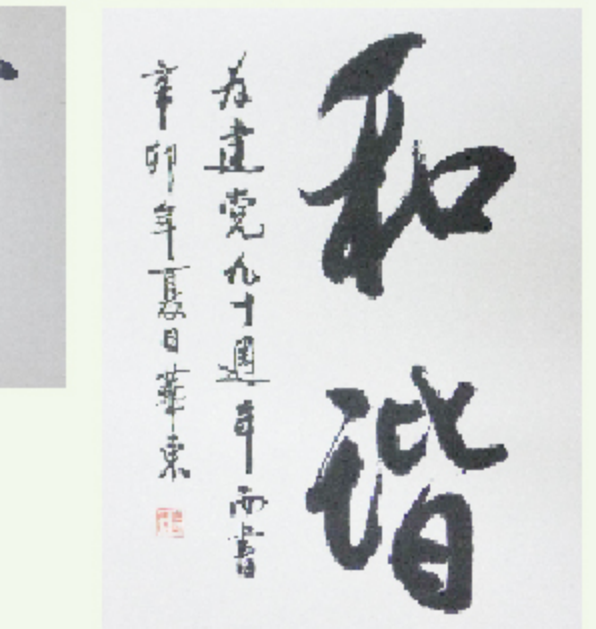 和谐
为建党九十週年而書
辛卯年夏日華東